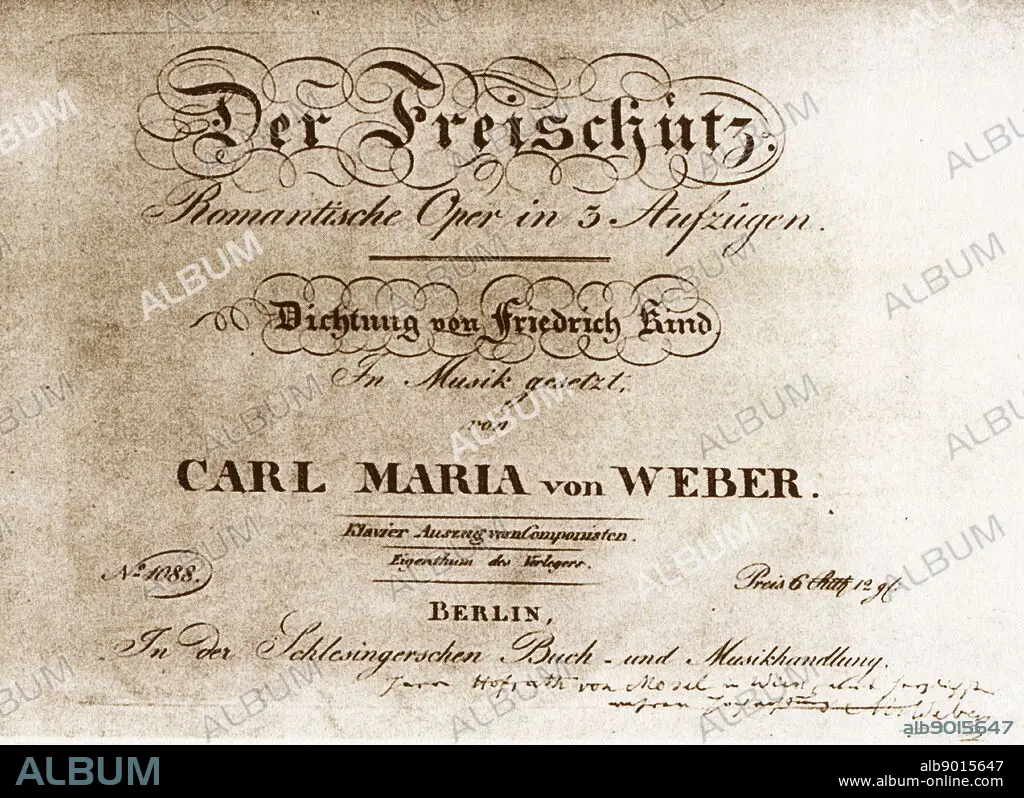 Der Freischütz.
Romantische Oper in 3 Aufzügen.
Dichtung von Friedrich Kind
In Musik gesetzt,
von
CARL MARIA von WEBER.
Klavier Auszug vom Componisten.
Eigenthum des Verlegers.
No. 1088.
Preis 6 Rth 12 gl.
BERLIN,
In der Schlesingerschen Buch- und Musikhandlung.
Herrn Hofrath von Mosel in Wien
Weber
alb9015647
ALBUM
alb9015647
www.album-online.com